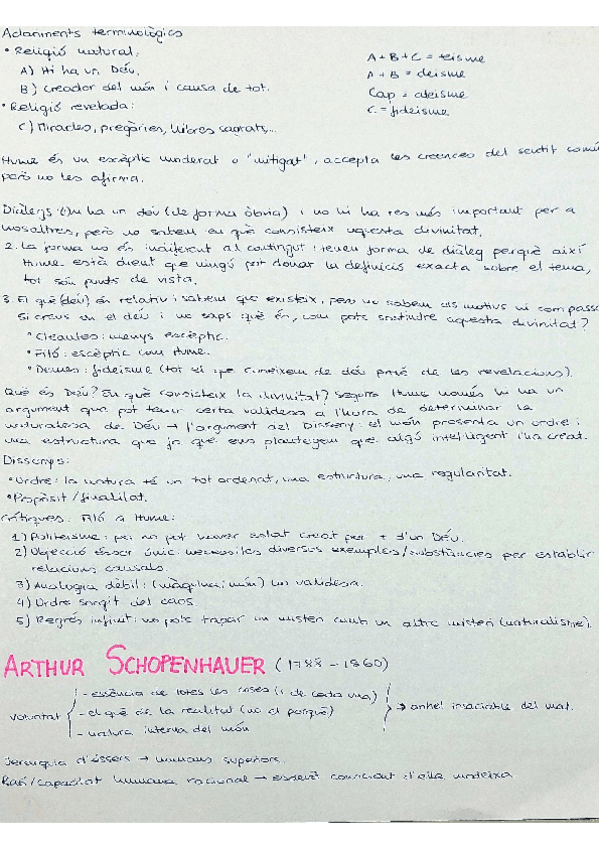 Aclariments terminològics
• Religió natural:
A) Hi ha un Déu.
B) Creador del món i causa de tot.
• Religió revelada:
C) Miracles, pregàries, llibres sagrats...
A + B + C = teisme
A + B = deisme
Cap = ateisme
C = fideisme
Hume és un escèptic moderat o "mitigat", accepta les creences del sentit comú
però no les afirma.
Diàlegs: hi ha un déu (de forma òbvia) i no hi ha res més important per a
nosaltres, però no sabem en què consisteix aquesta divinitat.
2. La forma no és indiferent al contingut: tenen forma de diàleg perquè així
Hume està dient que ningú pot donar la definició exacta sobre el tema,
tot són punts de vista.
3. El què (déu) és relatiu: sabem que existeix, però no sabem els motius ni
si creus en el déu i no saps què és, com pots sostindre aquesta divinitat?
• Cleantes: menys escèptic.
• Filó: escèptic com Hume.
• Demes: fideisme (tot el que coneixem de déu prové de les revelacions).
Què és Déu? En què consisteix la divinitat? Segons Hume només hi ha un
argument que pot tenir certa validesa a l'hora de determinar la
naturalesa de Déu → l'argument del Disseny: el món presenta un ordre i
una estructura que ja que ens plantegem que algú intel·ligent l'ha creat.
Dissenys:
• Ordre: la natura té un tot ordenat, una estructura, una regularitat.
• Propòsit / finalitat.
Crítiques. Filó a Hume:
1) Politeisme: per no pot haver estat creat per + d'un Déu.
2) Objecció ésser únic: necessites diversos exemples/substàncies per establir
relacions causals.
3) Analogia dèbil: (màquina i món) no validesa.
4) Ordre sorgit del caos.
5) Regrés infinit: no pots tapar un misteri amb un altre misteri (naturalisme).
ARTHUR SCHOPENHAUER (1788 - 1860)
voluntat
- essència de totes les coses (i de cada una)
- el què de la realitat (no el perquè)
- natura interna del món
→ anhel insaciable del mat.
Jerarquia d'éssers → humans superiors.
Raó/capacitat humana racional → esdevé conscient d'ella mateixa